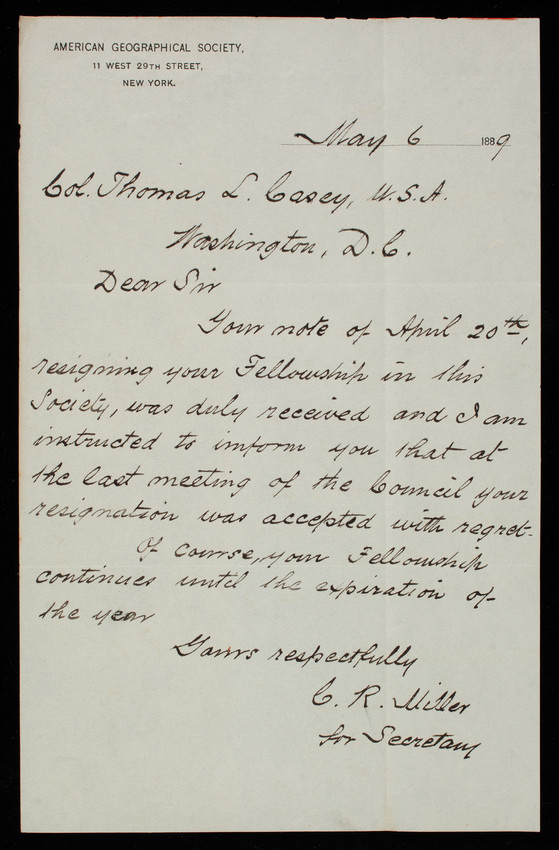 AMERICAN GEOGRAPHICAL SOCIETY,
11 WEST 29TH STREET,
NEW YORK.
May 6 1889
Col. Thomas L. Casey, U.S.A.
Washington, D.C.
Dear Sir
Your note of April 20th,
resigning your Fellowship in this
Society, was duly received and I am
instructed to inform you that at
the last meeting of the Council your
resignation was accepted with regret.
Of course, your Fellowship
continues until the expiration of
the year
Yours respectfully
C. R. Miller
for Secretary